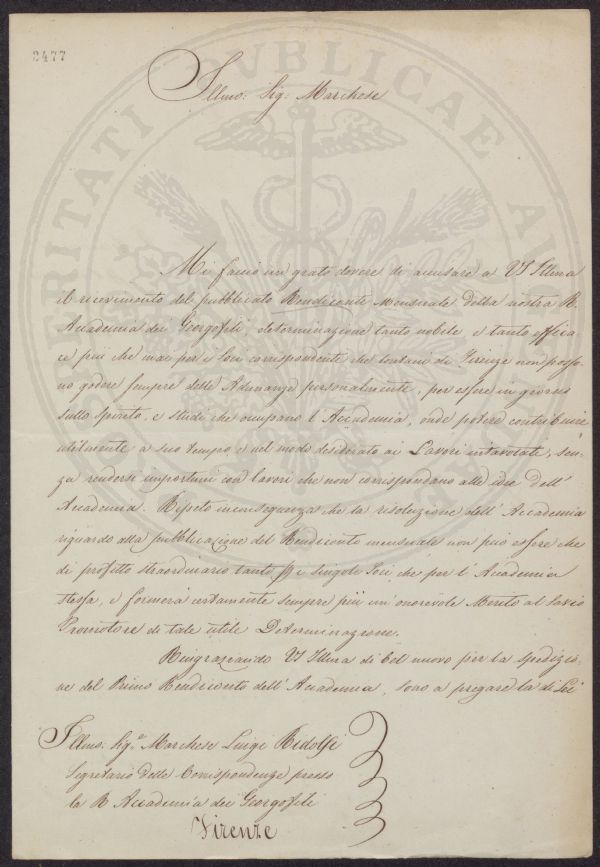 2477
Illmo: Sig: Marchese
Mi faccio un grato dovere di accusare a VS Illma
il ricevimento del pubblicato Rendiconto mensuale della nostra R.
Accademia dei Georgofili, determinazione tanto nobile, e tanto effica
ce più che mai per i Soci corrispondenti che lontani di Firenze non posso-
no godere sempre delle Adunanze personalmente, per essere in giorno
sullo spirito, e studi che occupano l'Accademia, onde potere contribuire
utilmente a suo tempo e nel modo desiderato ai Lavori intavolati, sen-
za rendersi importuni con lavori che non corrispondano alle idee dell'
Accademia. Ripeto inconseguenza che la risoluzione dell'Accademia
riguardo alla pubblicazione del Rendiconto mensuale non può essere che
di profitto straordinario tanto p i singoli Soci che per l'Accademia
stessa, e formerà certamente sempre più un'onorevole Merito al savio
Promotore di tale utile Determinazione.
Ringraziando VS Illma di bel nuovo per la spedizio-
ne del Primo Rendiconto dell'Accademia, sono a pregare la di Lei
Illmo: Sigr. Marchese Luigi Ridolfi
Segretario delle Corrispondenze presso
la R Accademia dei Georgofili
Firenze
PROSPERITATI PUBLICAE AUGENDAE